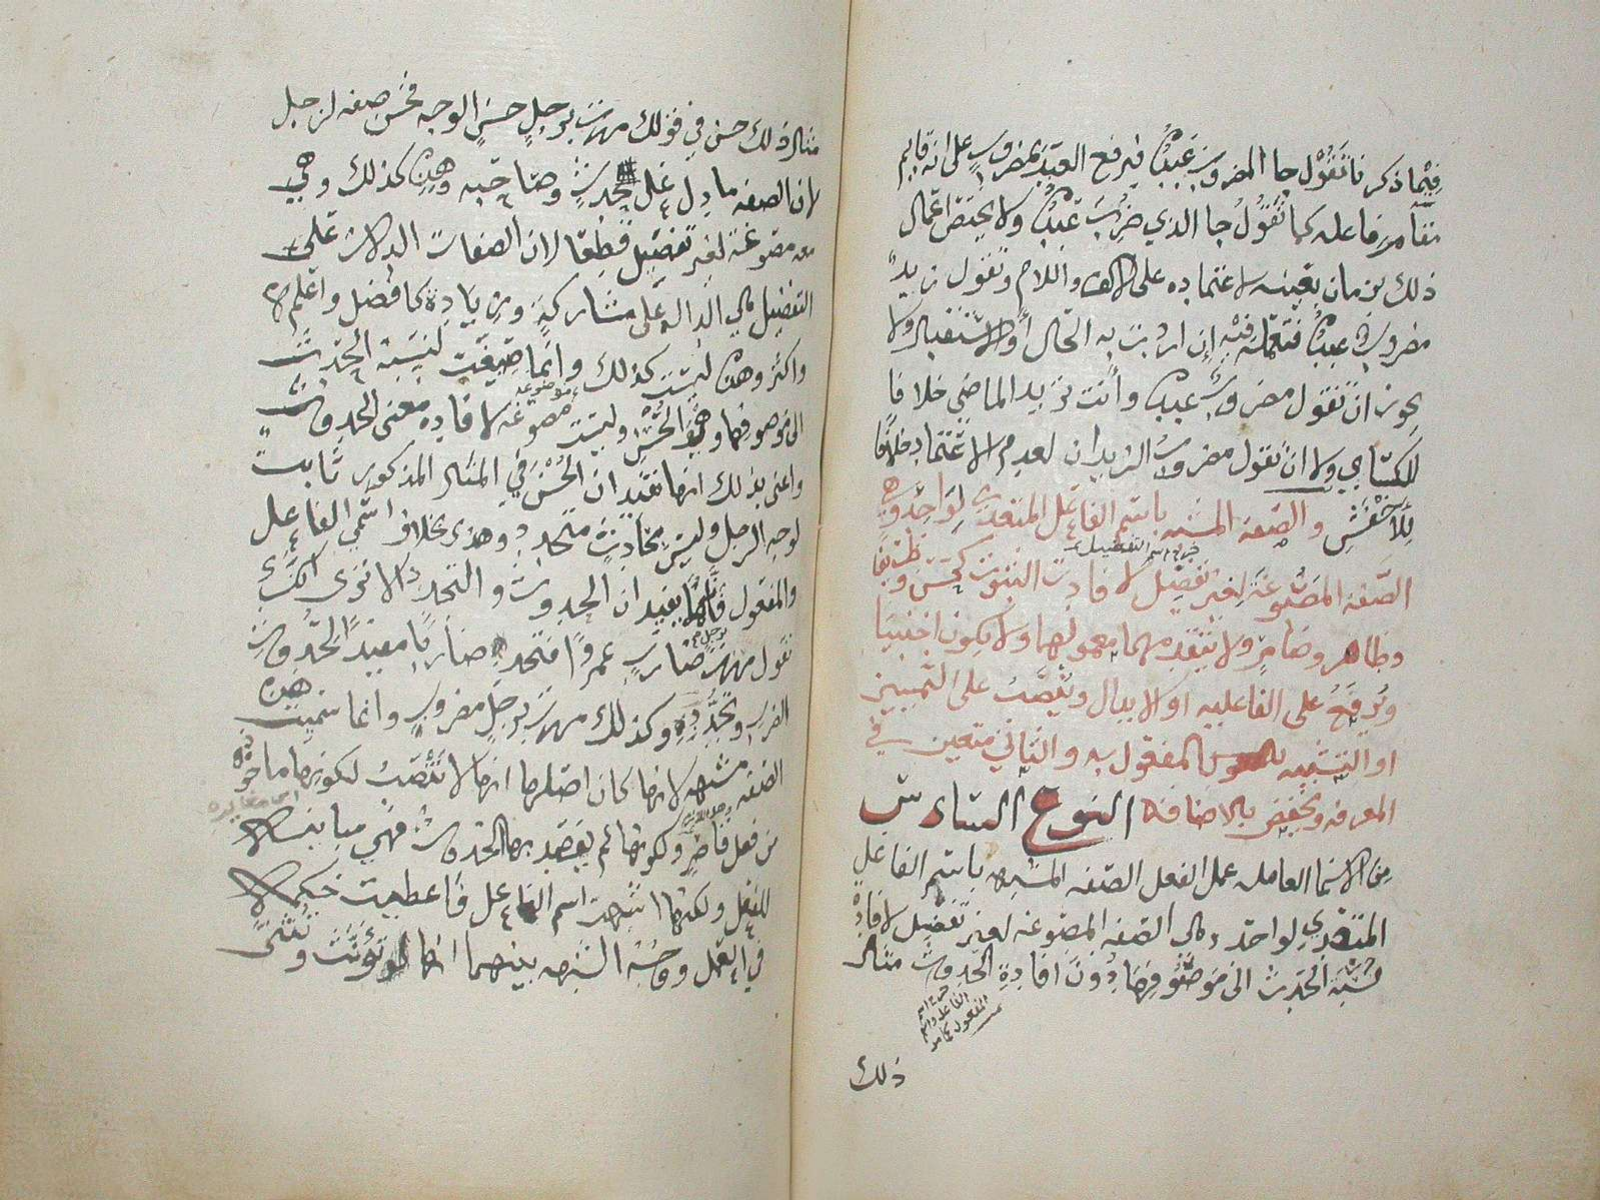 فيما ذكرنا تقول جا المضروب عبدُه فترفع العبد بمضروب على انه قايم
مقام فاعله كما تقول جا الذي ضُرِبَ عبدُه ولا يختص اعمال
ذلك بزمان بعينه لاعتماده على الالف واللام وتقول زيدٌ
مضروبٌ عبدُه فتعمله فيه إن اردت به الحال أو الاستقبال ولا
يجوز ان تقول مضروبٌ عبدُه وأنت تريد الماضي خلافا
للكسّاي ولا ان تقول مضروبٌ الزيدان لعدم الاعتماد خلافًا
للأخفشِ والصفة المشبهه باسم الفاعل المتعدي لواحد وهي
الصّفة المصوغة لغير تفضيل لافادت الثبوت كحسن وظريف
وطاهر وضامر ولا يتقدمها معمولها ولا يكون اجنبيا
ويُرفَعُ على الفاعليه او الابدال ويُنصَبُ على التمييز
او التشبيه بالمفعول به والثاني متعين في
المعرفه ويخفض بالاضافه النوع السادس
من الاسما العامله عمل الفعل الصّفه المشبهه باسم الفاعل
المتعدي لواحد وهي الصفه المصوغه لغير تفضيل لافادة
نسبة الحدث الى موصوفها دُونَ افادةِ الحدوث مثال
خرج اسم
الفاعل واسم
المفعول
ذلك
مثال ذلك حسن في قولك مررت برجلٍ حسنِ الوجه فحسن صفه لرجل
لان الصفه ما دل على حدث وصاحبه وهذه كذلك وهي
مصوغة لغير تفضيل قطعا لان الصفات الدالات على
التفضيل هي الداله على مشاركة وزيادة كافضل واعلم
واكثر وهذه ليست كذلك وانما صيغت لنسبة الحدث
الى موصوفها وهو الحُسْن وليست مصوغة لافاده معنى الحدوث
واعنى بذلك انها تفيد ان الحُسْنَ في المثال المذكور ثابت
لوجه الرجل وليس بحادثٍ متجدد وهذا بخلاف اسمي الفاعل
والمفعول فانهما يفيدان الحدوث والتجدد الا ترى انك
تقول مررت برجل ضارب عمروًا فتجد ضاربًا مفيدًا لحُدوثِ
الضرب وتجدده وكذلك مررت برجل مضروب وانما سميت هذه
الصفه مشبهه لانها كان اصلها انها لا تنصب لكونها ماخوذه
من فعل قاصر ولكونها لم يقصد بها الحدوث فهي مباينه
للفعل ولكنها اشبهت اسم الفاعل فأعطيت حكمه
في العمل ووجْهُ الشبه بينهما انها تؤنث وتثنى